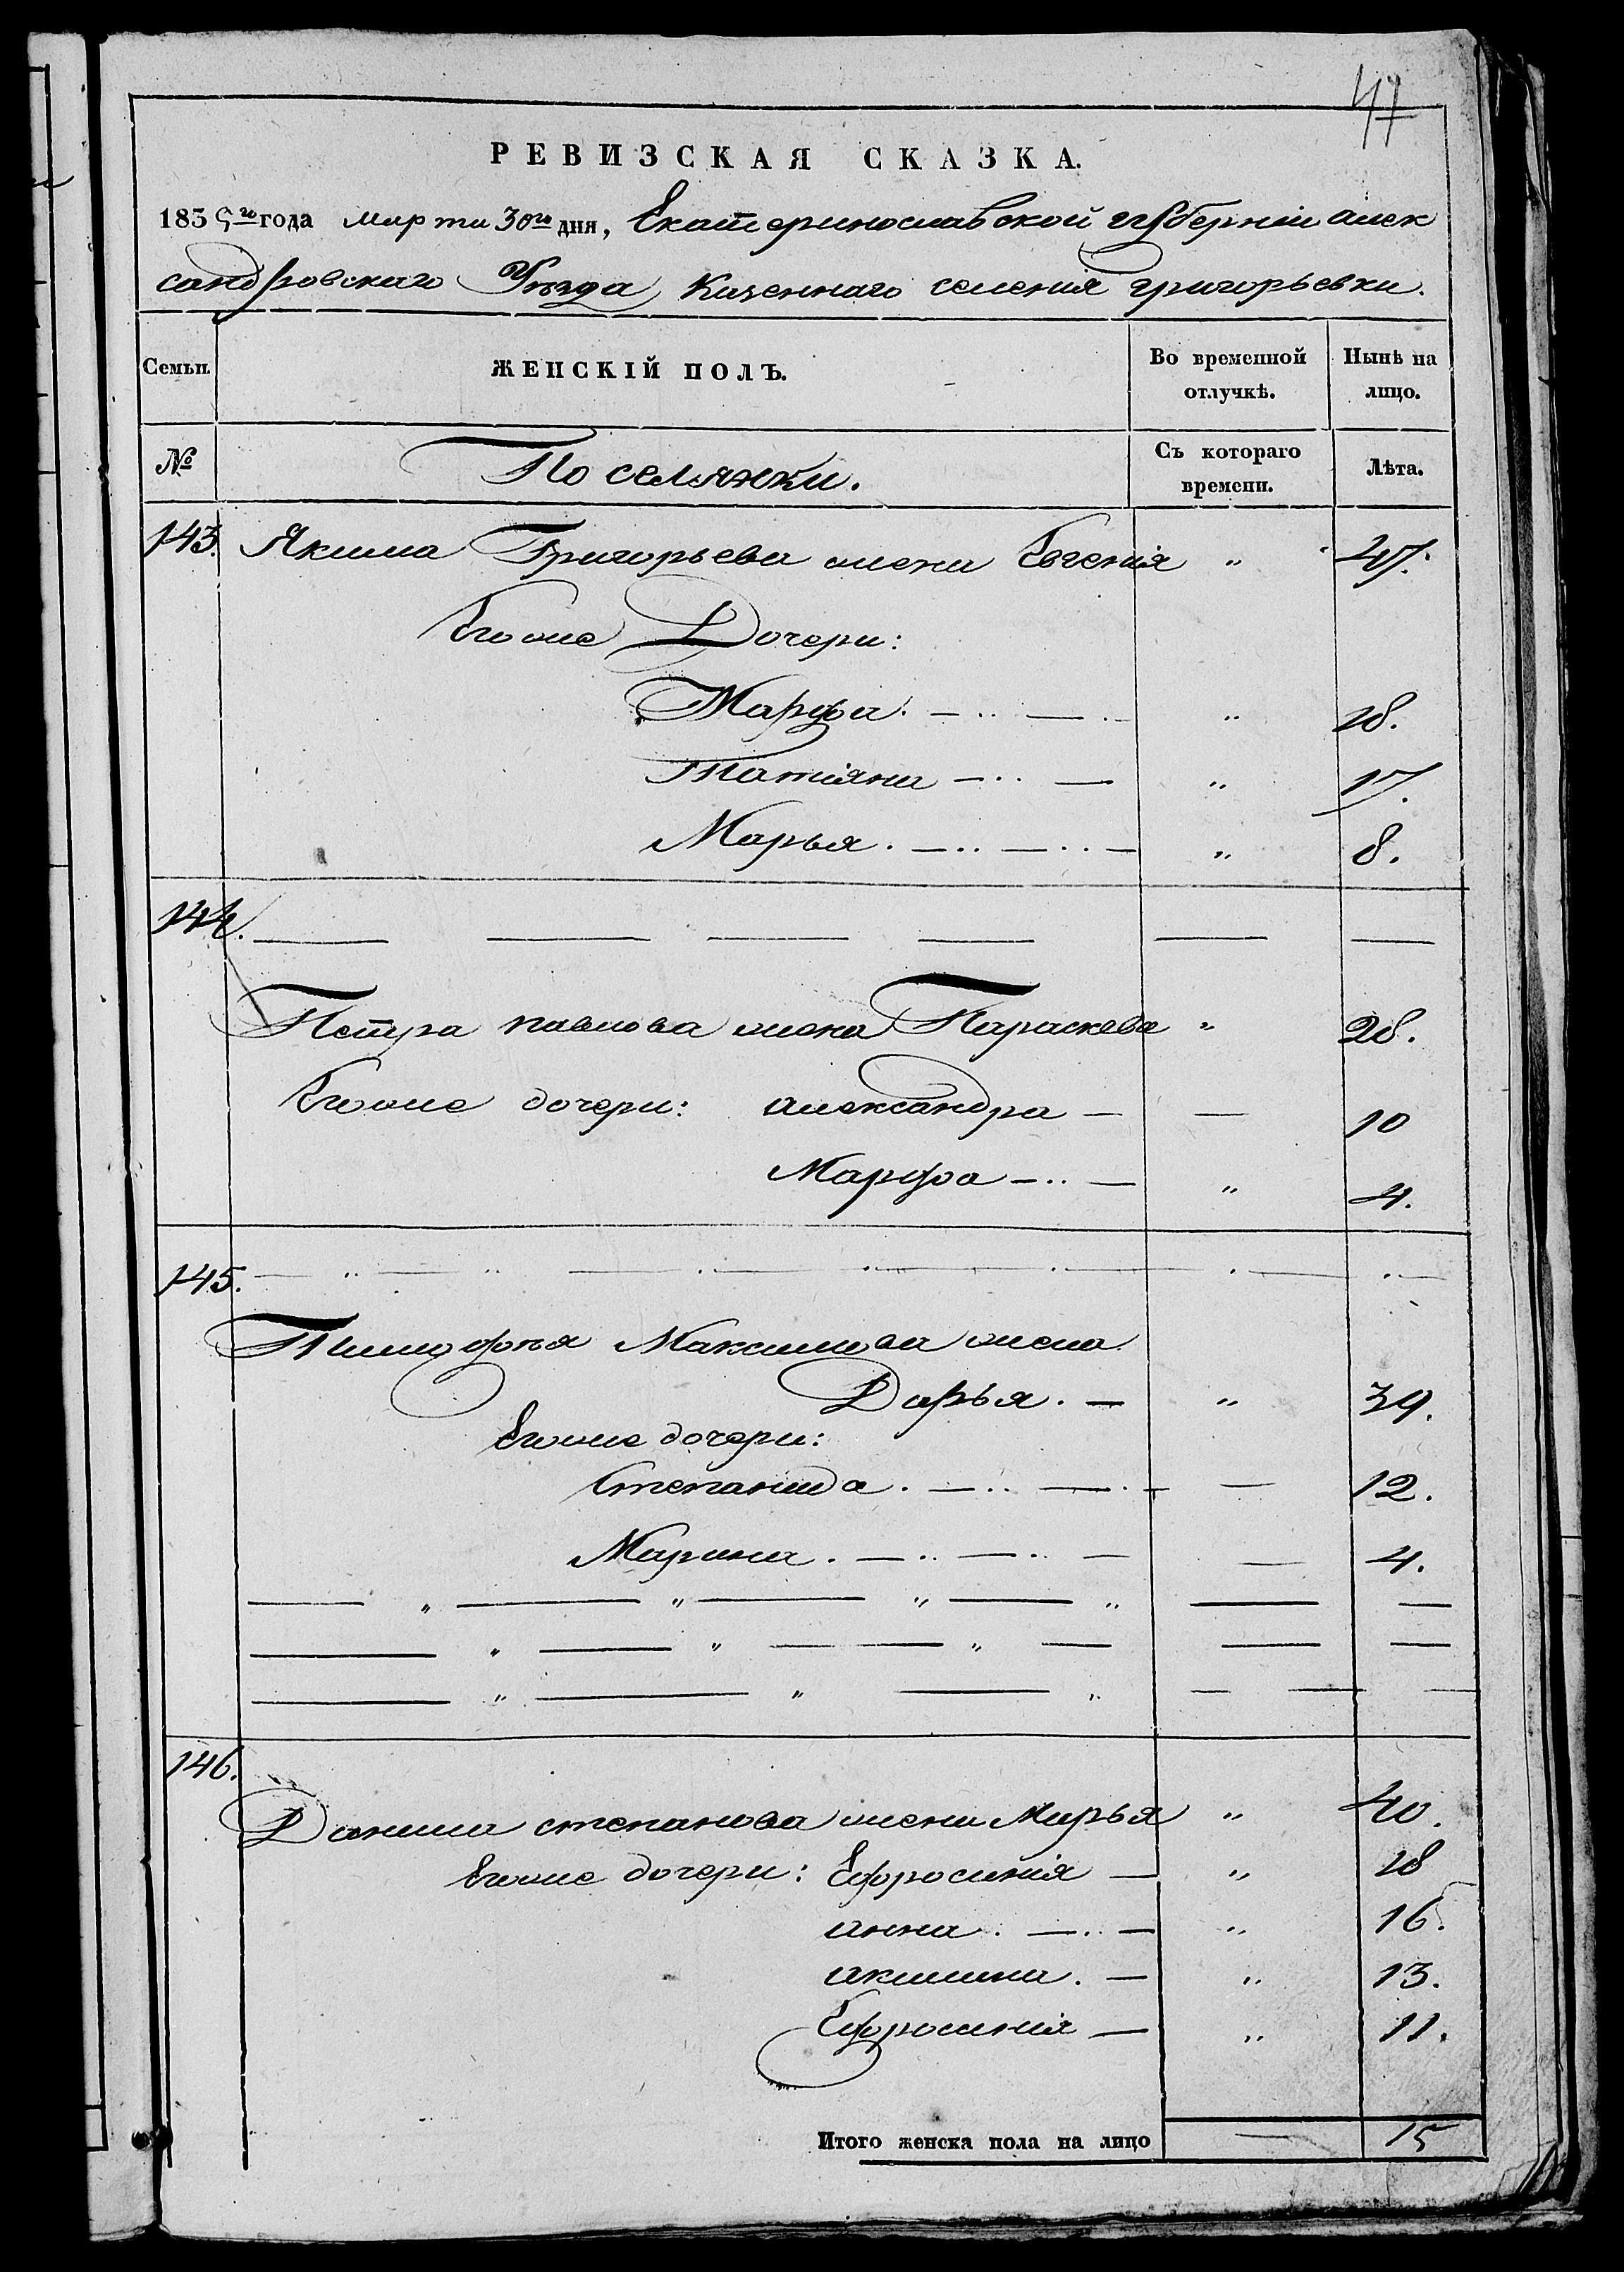 47
РЕВИЗСКАЯ СКАЗКА.
1835го года марта 30го дня, Екатеринославской губерніи алек
сандровскаго Уѣзда Казеннаго селенія григорьевки.
Семьи. ЖЕНСКІЙ ПОЛЪ. Во временной отлучкѣ. Нынѣ на лицо.
№ Поселянки. Съ котораго времени. Лѣта.
143. Якима Григорьева жена Евгенія „ 47.
Егоже Дочери:
Марфа. — .. — . „ 18.
Татіяна — .. — „ 17.
Марья. — .. — .. — „ 8.
144. — — — — — —
Петра павлова жена Параскева „ 28.
Егоже дочери: александра — — 10
Марфа — .. — „ 4.
145. — .. — .. — .. — . — . — . — . —
Тимофѣя Максимова жена
Дарья. — „ 39.
Егоже дочери:
Степанида. — .. — . — — 12.
Марина. — .. — .. — — 4.
— „ — „ — „ — „ — —
— „ — „ — — „ — — —
— „ — „ — „ — — —
146.
Данила степанова жена Марья „ 40.
Егоже дочери: Ефросинія — „ 18
анна. — . — „ 16.
акилина. — „ 13.
Ефросинія — „ 11.
Итого женска пола на лицо — 15